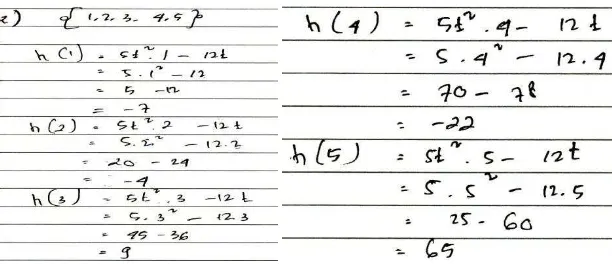 2) a { 1. 2. 3. 4. 5 }
h (1) = 5t². 1 - 12t
= 5. 1² - 12
= 5 - 12
= -7
h (2) = 5t². 2 - 12t
= 5. 2² - 12. 2
= 20 - 24
= -4
h (3) = 5t². 3 - 12t
= 5. 3² - 12 3
= 45 - 36
= 9
h (4) = 5t². 4 - 12t
= 5. 4² - 12. 4
= 70 - 78
= -22
h (5) = 5t². 5 - 12t
= 5. 5² - 12. 5
= 25 - 60
= 65